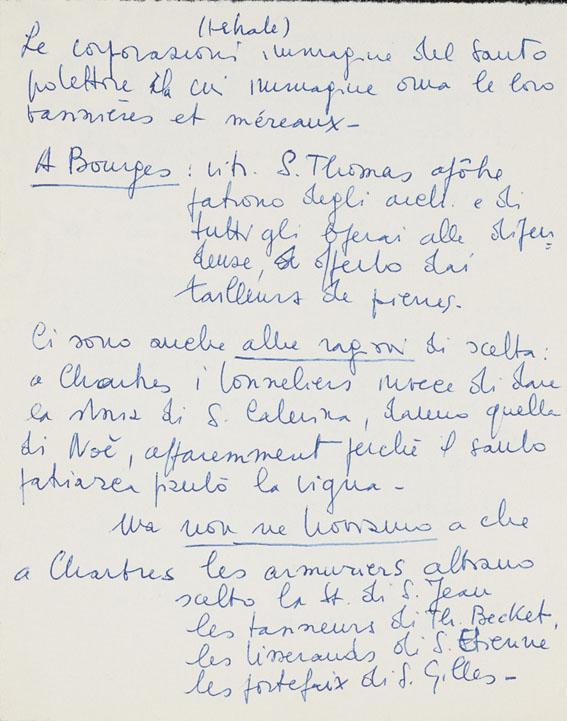 Le corporazioni immagine del santo
protettore la cui immagine orna le loro
bannières et méreaux -
A Bourges : vitr. S. Thomas apôtre
patrono degli arch. e di
tutti gli operai alle dipen=
denze, offerto dai
tailleurs de pierres.
Ci sono anche altre ragioni di scelta:
a Chartres i tonneliers invece di dare
la storia di S. Caterina, danno quella
di Noè, apparemment perchè il santo
patriarca piantò la vigna -
Ma non ne troviamo a che
a Chartres les armuriers abbiano
scelto la St. di S. Jean
les tanneurs di Th. Becket,
les tisserands di S. Etienne
les portefaix di S. Gilles -